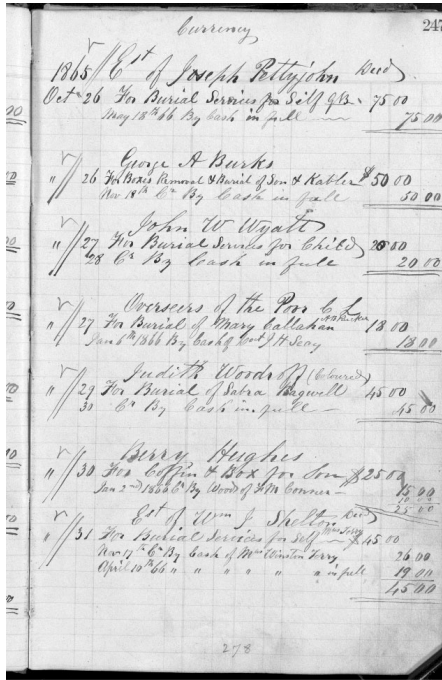 Currency
247
1865 Est of Joseph Pettyjohn Decd
Oct 26 For Burial Services for Self G.B. 75 00
May 18th 66 By Cash in full 75 00
George A Burks
" 26 For Boxes Removal & Burial of Son & Kabler $50 00
Nov 18th Cr By Cash in full 50 00
John W Wyatt
" 27 For Burial Services for Child 20 00
28 Cr By Cash in full 20 00
Overseers of the Poor C L
" 27 For Burial of Mary Callahan 18 00
Jany 6th 1866 By Cash of J H Seay 18 00
Judith Woodroff (Coloured)
" 29 For Burial of Sabra Bagwell 45 00
30 Cr By Cash in full 45 00
Berry Hughes
" 30 For Coffin & Box for Son $25 00
Jan 2nd 1866 Cr By Wood of F M Conner 15 00
10 00
25 00
Est of Wm J. Shelton Decd
Mrs Terry
" 31 For Burial Services for Self $45 00
Nov 17th Cr By Cash of Mrs Winston Terry 26 00
April 19th 66 " " " " " " in full 19 00
45 00
278